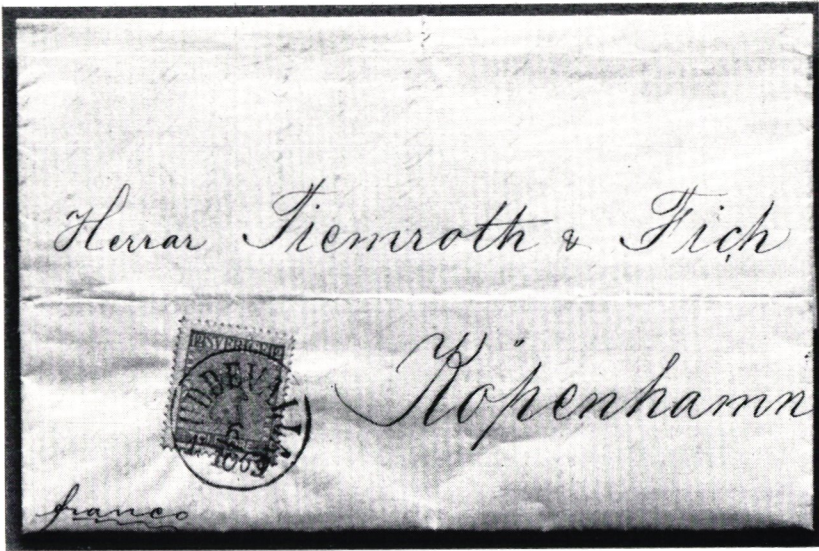 Herrar Tiemroth & Fich
Köpenhamn
SVERIGE
UDDEVALLA
6
1869
franco